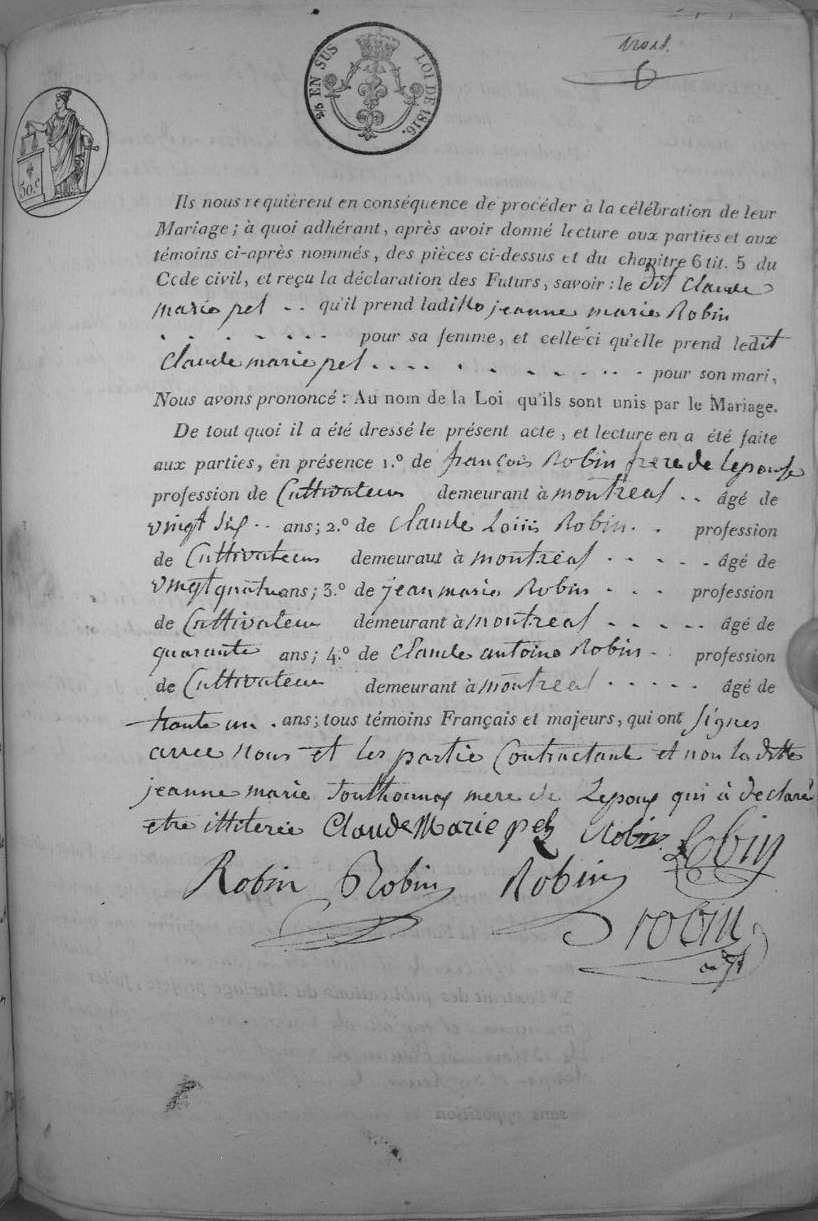 trois.
6
2/5 EN SUS LOI DE 1816.
50.c
Ils nous requièrent en conséquence de procéder à la célébration de leur
Mariage; à quoi adhérant, après avoir donné lecture aux parties et aux
témoins ci-après nommés, des pièces ci-dessus et du chapitre 6 tit. 5 du
Code civil, et reçu la déclaration des Futurs, savoir: le dit Claude
marie pel .. qu'il prend laditte jeanne marie Robin
. . . . . . . . pour sa femme, et celle-ci qu'elle prend ledit
Claude marie pel . . . . . . . . . . . . pour son mari,
Nous avons prononcé: Au nom de la Loi qu'ils sont unis par le Mariage.
De tout quoi il a été dressé le présent acte, et lecture en a été faite
aux parties, en présence 1.º de françois Robin frere de lepouse
profession de Cultivateur demeurant à montreal .. âgé de
vingt six .. ans; 2.º de Claude Louis Robin . . profession
de Cultivateur demeurant à montreal . . . . . âgé de
vingt quatre ans; 3.º de jean marie Robin . . . profession
de Cultivateur demeurant à montreal . . . . . âgé de
quarante ans; 4.º de Claude antoine Robin .. profession
de Cultivateur demeurant à montreal . . . . . âgé de
trante un . ans; tous témoins Français et majeurs, qui ont signés
avec nous et les partie Contractante et non la ditte
jeanne marie mere de Lepoux qui à declaré
etre illiterée Claude Marie pel Robin Robin
Robin Robin Robin
robin